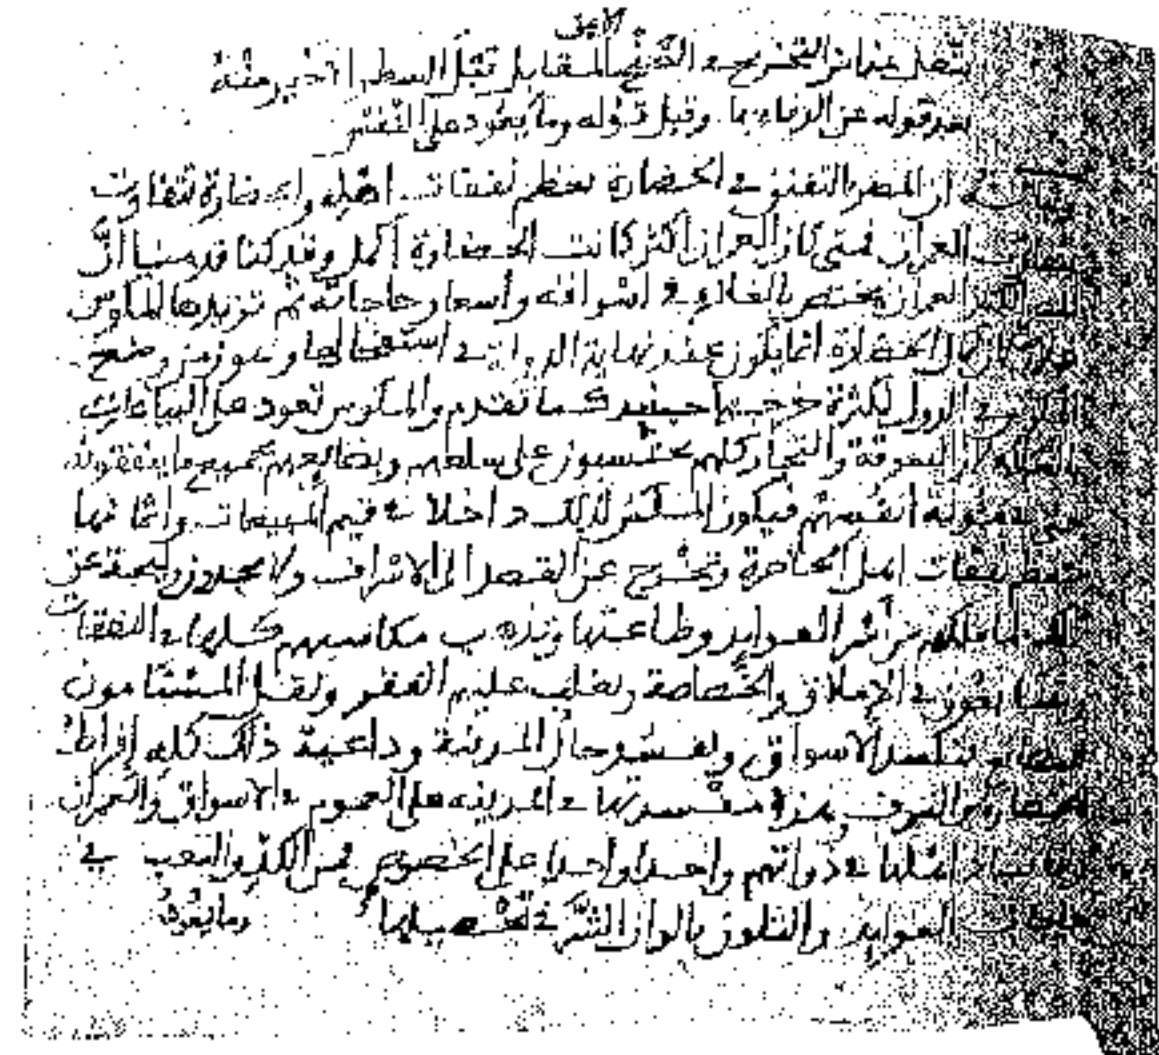 الابيض
ينقل هذا من التخريج في الكنش المقابل قبل السطر الاخير منه
بعد قوله عن الوفاء بها وقبل قوله وما يعود على النفس
ان المصر بالتفنن في الحضارة تعظم نفقات اهله والحضارة تتفاوت
بتفاوت العمران فمتى كان العمران اكثر كانت الحضارة اكمل وقد كنا قدمنا ان
المصر الكثير العمران يختص بالغلاء في اسواقه واسعار حاجاته ثم تزيدها المكوس
كمال الحضارة انما يكون عند نهاية الدولة في استفحالها وهو زمن وضع
المكوس في الدول لكثرة خرجها حينيذ كما تقدم والمكوس تعود على البياعات
بالغلاء لان السوقة والتجار كلهم يحتسبون على سلعهم وبضايعهم جميع ما ينفقونه
حتى في مئونة انفسهم فيكون المكس لذلك داخلا في قيم المبيعات واثمانها
فتعظم نفقات اهل الحاضرة وتخرج عن القصد الى الاسراف ولا يجدون وليجة عن
ذلك لما ملكهم من أثر العوايد وطاعتها وتذهب مكاسبهم كلها في النفقات
ويتتابعون في الإملاق والخصاصة ويغلب عليهم الفقر ويقل المستامون
للبضايع فتكسد الاسواق ويفسد حال المدينة وداعية ذلك كله إفراط
الحضارة والترف وهذه مفسدتها في المدينة على العموم في الاسواق والعمران
واما فساد اهلها في ذواتهم واحدا واحدا على الخصوص فمن الكد والتعب في
حاجات العوايد والتلون بالوان الشر في تحصيلها وما يعود